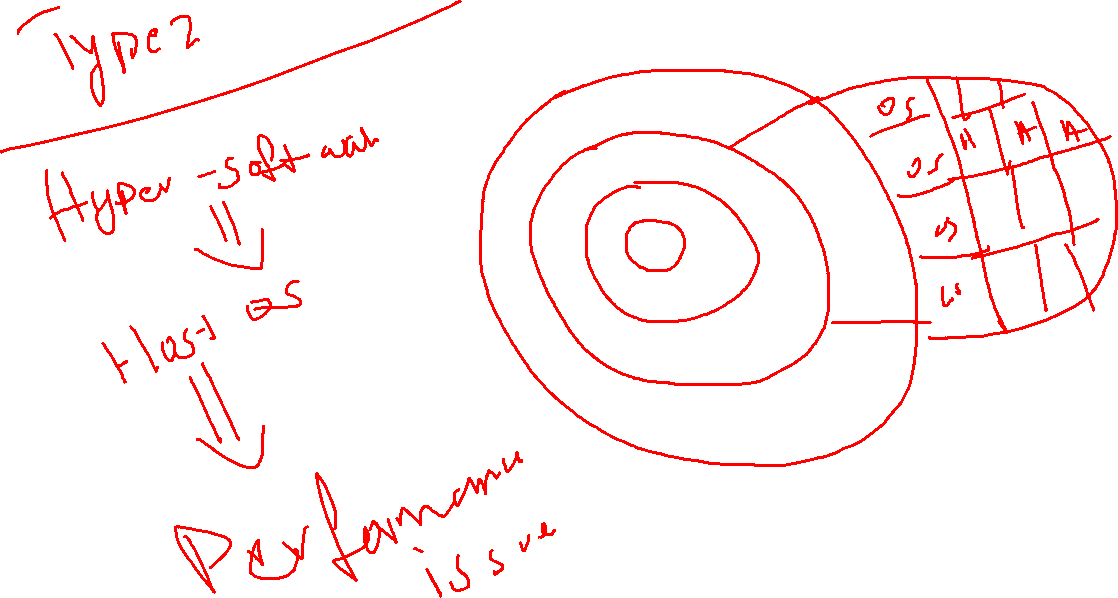 Type 2
Hyper - Software
Host OS
Performance
issue
OS
OS
A A A
OS
OS